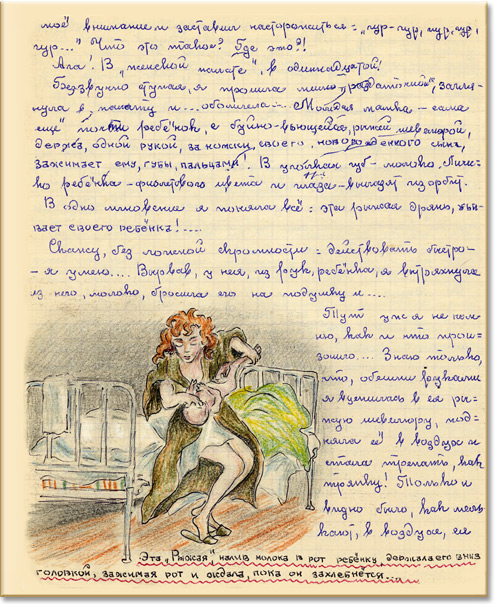 моё внимание и заставил насторожиться: „гур-гур, гур, гур,
гур..." Что это такое? Где это?!
Ага! В „женской палате", в одиннадцатой!
Безузвучно ступая, я прошла мимо „раздаточной", загля-
нула в палату и... обомлела... Молодая мамка – сама
ещё почти ребёнок, с буйно-вьющейся, рыжей шевелюрой,
держа, одной рукой, за ножки, своего, новорождённого сына,
зажимает ему, губы, пальцами! В уголках губ – молоко. Личи-
ко ребёнка – фиолетового цвета и глаза – вылазят из орбит.
В одно мгновение я поняла всё: эта рыжая дрянь, уби-
вает своего ребёнка!....
Скажу, без ложной скромности: действовать быстро-
– я умею.... Вырвав, у неё, из рук, ребёнка, я вытряхнула
из него, молоко, бросила его на подушку и....
Тут уж я не пом-
ню, как и что прои-
зошло.... Знаю только,
что, обеими руками
я вцепилась в её ры-
жую шевелюру, под-
няла её в воздух и
стала трепать, как
тряпку! Только и
видно было, как мель-
кают, в воздухе, её
Эта „Рыжая", налив молока в рот ребёнку, держала его вниз
головкой, зажимая рот и ожидала, пока он захлебнётся...